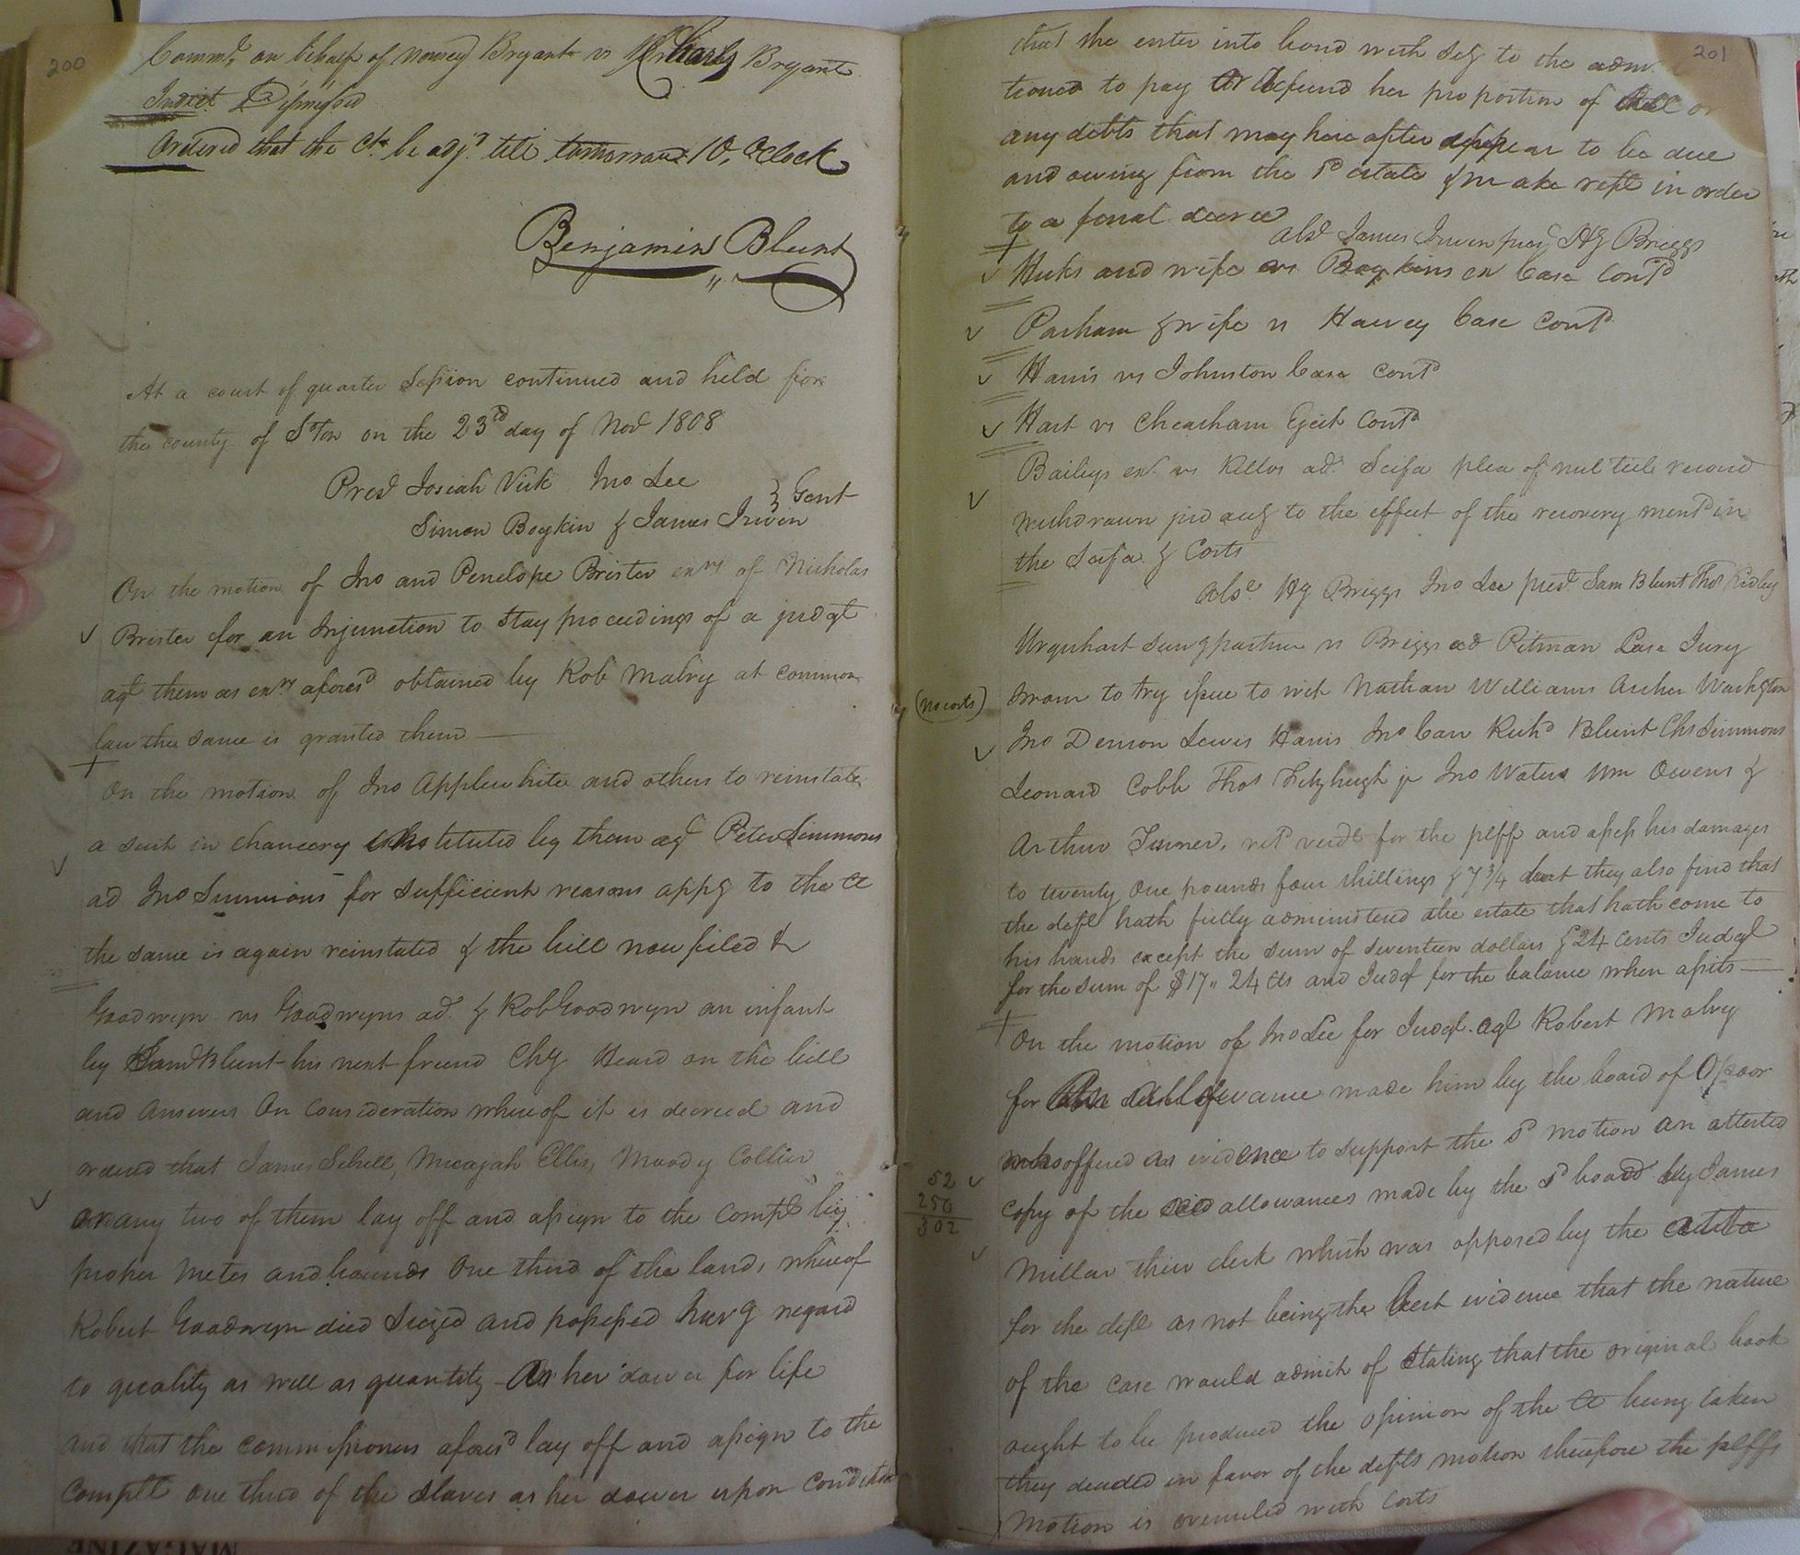 200
Commth on behalf of Nancy Bryant vs Charles Bryant
Indict Dismissed
Ordered that the Ct be adjd till tomorrow 10, OClock
Benjamin Blunt
At a court of quarter Session continued and held for
the county of S'ton on the 23rd day of Novr 1808
Presd Josiah Vick Jno Lee
Simon Boykin & James Irwin } Gent
On the motion of Jno and Penelope Brister exrs of Nicholas
Brister for an Injunction to stay proceedings of a judgt
agt them as exrs aforesd obtained by Rob Mabry at common
law the same is granted them
On the motion of Jno Applewhite and others to reinstate
a suit in chancery instituted by them agt Peter Simmons
ad Jno Simmons for sufficient reasons appg to the Ct
the same is again reinstated & the bill now filed &
Goodwyn vs Goodwyns ad. & Rob Goodwyn an infant
by Saml Blunt his next friend Chy Heard on the bill
and answers On consideration whereof it is decreed and
ordered that James Sebrell, Micajah Ellis, Moody Collier
or any two of them lay off and assign to the complt by
proper metes and bounds One third of the lands whereof
Robert Goodwyn died Seized and possessed havg regard
to quality as well as quantity as her dower for life
and that the commissioners aforesd lay off and assign to the
complt one third of the slaves as her dower upon condition
201
that she enter into bond with Sey to the adm
tioned to pay or refund her proportion of
any debts that may hereafter appear to be due
and owing from the sd estate & make rept in order
to a final decree
abst James Irwin prest HG Briggs
Hicks and wife vs Boykins ex Case Contd
Parham & wife vs Harvey Case Contd
Harris vs Johnston Case Contd
Hart vs Cheasham Eject Contd
Baileys exr vs Kellos ad. Scifa plea of nul tiel record
withdrawn jud acg to the effect of the recovery mentd in
the Scifa & Costs
abst HG Briggs Jno Lee prest Sam Blunt Thos Ridley
Urquhart surv partner vs Briggs ad Pitman Case Jury
(no costs)
sworn to try issue to wit Nathan Williams Archer Washgton
Jno Denson Lewis Harris Jno Carr Richd Blunt Chs Simmons
Leonard Cobb Thos Fitzhugh jr Jno Waters Wm Owens &
Arthur Turner, retd verdt for the pltff and assess his damages
to twenty One pounds four shillings & 7 3/4 but they also find that
the deft hath fully administered the estate that hath come to
his hands except the sum of seventeen dollars & 24 cents Judgt
for the sum of $17 " 24 cts and Judgt for the balance when assets
On the motion of Jno Lee for Judgt agt Robert Mabry
for allowance made him by the board of O poor
who offered as evidence to support the sd motion an attested
52
250
302
copy of the allowances made by the sd board by James
Millar their clerk which was opposed by the
for the deft as not being the best evidence that the nature
of the case would admit of stating that the original book
ought to be produced the opinion of the Ct being taken
they decided in favor of the defts motion therefore the pltffs
motion is overruled with costs
MAGAZINE